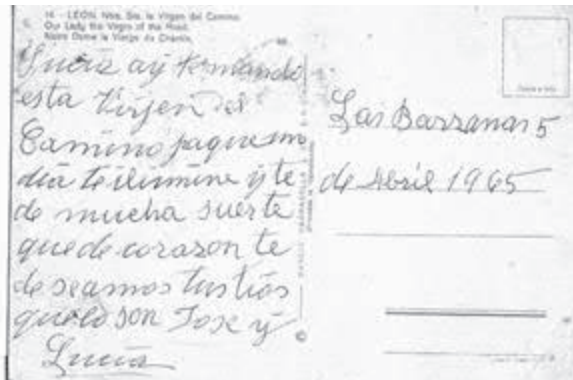 14 - LEON. Ntra. Sra. la Virgen del Camino.
Our Lady the Virgin of the Road.
Notre Dame la Vierge du Chemin.
Lucia ay te mando
esta Virjen del
Camino paque un
dia te ilumine y te
de mucha suerte
que de corazon te
deseamos tus tios
que lo son Jose y
Lucia
Las Barzanas 5
de Abril 1965